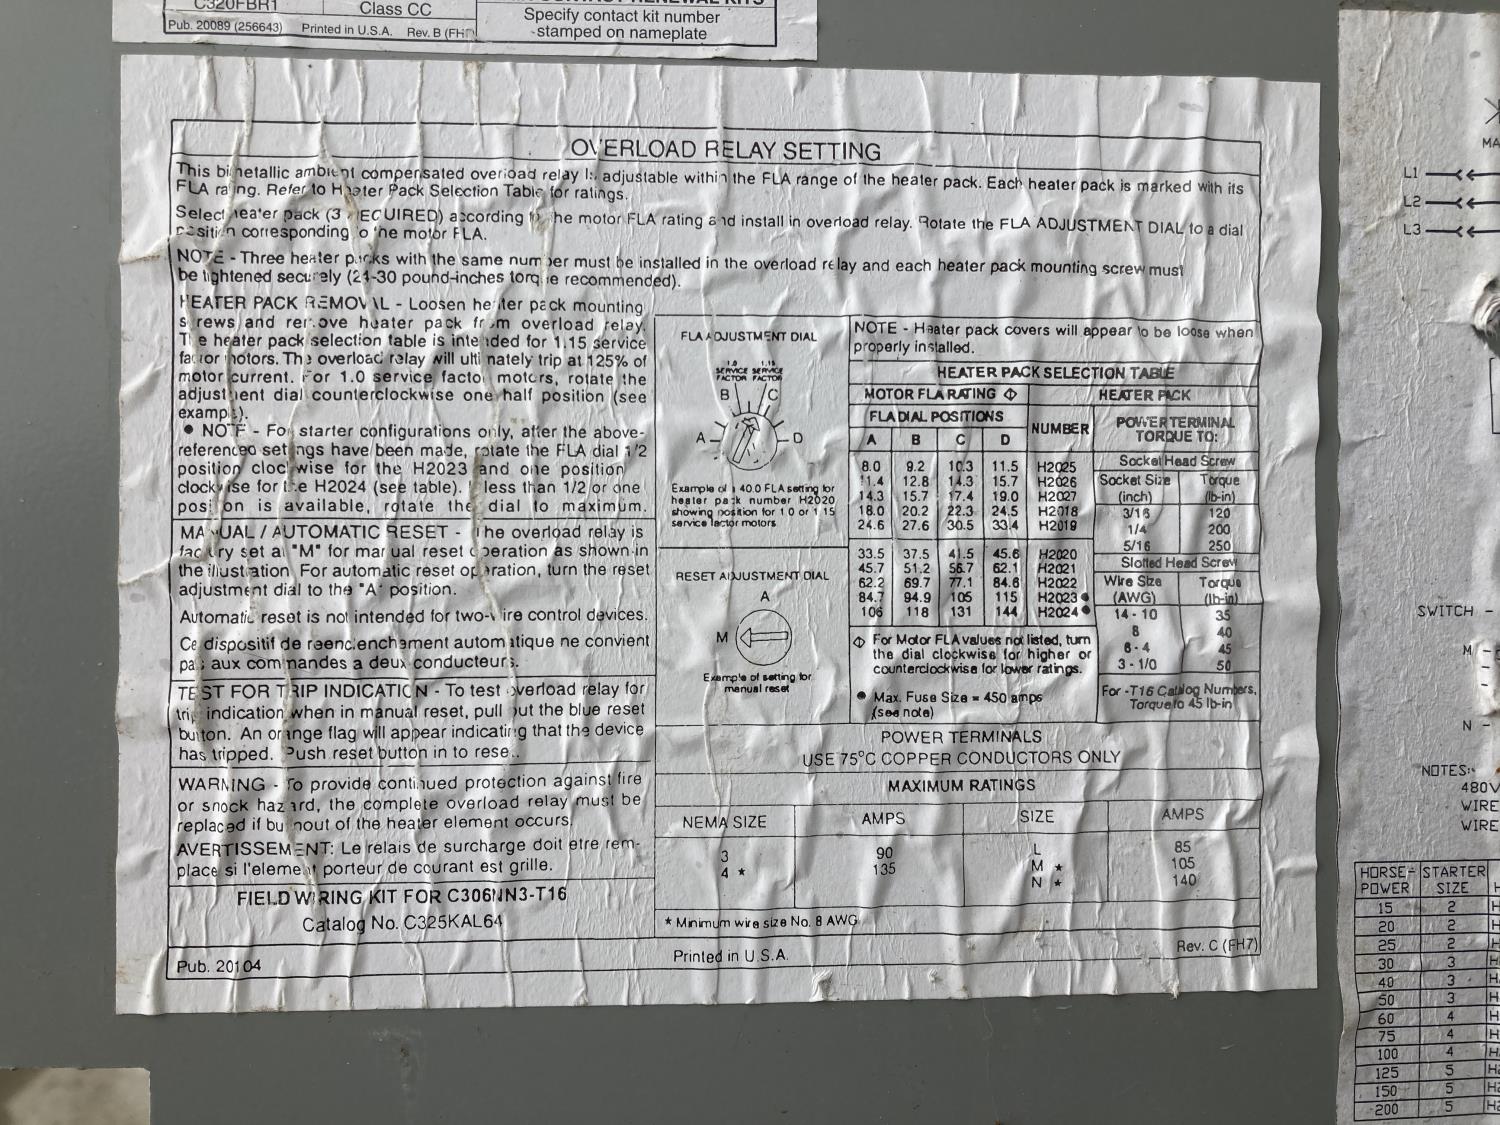 C320FBR1
Class CC
Pub. 20089 (256643) Printed in U.S.A. Rev. B
Specify contact kit number
stamped on nameplate
OVERLOAD RELAY SETTING
This bimetallic ambient compensated overload relay is adjustable within the FLA range of the heater pack. Each heater pack is marked with its
FLA rating. Refer to Heater Pack Selection Table for ratings.
Select heater pack (3 REQUIRED) according to the motor FLA rating and install in overload relay. Rotate the FLA ADJUSTMENT DIAL to a dial
position corresponding to the motor FLA.
NOTE - Three heater packs with the same number must be installed in the overload relay and each heater pack mounting screw must
be tightened securely (24-30 pound-inches torque recommended).
HEATER PACK REMOVAL - Loosen heater pack mounting
screws and remove heater pack from overload relay.
The heater pack selection table is intended for 1.15 service
factor motors. The overload relay will ultimately trip at 125% of
motor current. For 1.0 service factor motors, rotate the
adjustment dial counterclockwise one half position (see
example).
● NOTE - For starter configurations only, after the above-
referenced settings have been made, rotate the FLA dial 1/2
position clockwise for the H2023 and one position
clockwise for the H2024 (see table). If less than 1/2 or one
position is available, rotate the dial to maximum.
MANUAL / AUTOMATIC RESET - The overload relay is
factory set at "M" for manual reset operation as shown in
the illustration. For automatic reset operation, turn the reset
adjustment dial to the "A" position.
Automatic reset is not intended for two-wire control devices.
Ce dispositif de reenclenchement automatique ne convient
pas aux commandes a deux conducteurs.
TEST FOR TRIP INDICATION - To test overload relay for
trip indication when in manual reset, pull out the blue reset
button. An orange flag will appear indicating that the device
has tripped. Push reset button in to reset.
WARNING - To provide continued protection against fire
or shock hazard, the complete overload relay must be
replaced if burnout of the heater element occurs.
AVERTISSEMENT: Le relais de surcharge doit etre rem-
place si l'element porteur de courant est grille.
FIELD WIRING KIT FOR C306NN3-T16
Catalog No. C325KAL64
Pub. 20104
FLA ADJUSTMENT DIAL
1.0 1.15
SERVICE SERVICE
FACTOR FACTOR
B C
A D
Example of a 40.0 FLA setting for
heater pack number H2020
showing position for 1.0 or 1.15
service factor motors
RESET ADJUSTMENT DIAL
A
M
Example of setting for
manual reset
NOTE - Heater pack covers will appear to be loose when
properly installed.
HEATER PACK SELECTION TABLE
MOTOR FLA RATING HEATER PACK
FLA DIAL POSITIONS NUMBER POWER TERMINAL
TORQUE TO:
A B C D
8.0 9.2 10.3 11.5 H2025
11.4 12.8 14.3 15.7 H2026
14.3 15.7 17.4 19.0 H2027
18.0 20.2 22.3 24.5 H2018
24.6 27.6 30.5 33.4 H2019
33.5 37.5 41.5 45.6 H2020
45.7 51.2 56.7 62.1 H2021
62.2 69.7 77.1 84.6 H2022
84.7 94.9 105 115 H2023 ●
106 118 131 144 H2024 ●
Socket Head Screw
Socket Size Torque
(inch) (lb-in)
3/16 120
1/4 200
5/16 250
Slotted Head Screw
Wire Size Torque
(AWG) (lb-in)
14 - 10 35
8 40
6 - 4 45
3 - 1/0 50
For -T16 Catalog Numbers,
Torque to 45 lb-in
For Motor FLA values not listed, turn
the dial clockwise for higher or
counterclockwise for lower ratings.
● Max. Fuse Size = 450 amps
(see note)
POWER TERMINALS
USE 75°C COPPER CONDUCTORS ONLY
MAXIMUM RATINGS
NEMA SIZE AMPS SIZE AMPS
3 90 L 85
4 ★ 135 M ★ 105
N ★ 140
★ Minimum wire size No. 8 AWG
Printed in U.S.A.
Rev. C (FH7)
MA
L1
L2
L3
SWITCH
M
N
NOTES:
480V
WIRE
WIRE
HORSE- STARTER
POWER SIZE
15 2
20 2
25 2
30 3
40 3
50 3
60 4
75 4
100 4
125 5
150 5
200 5